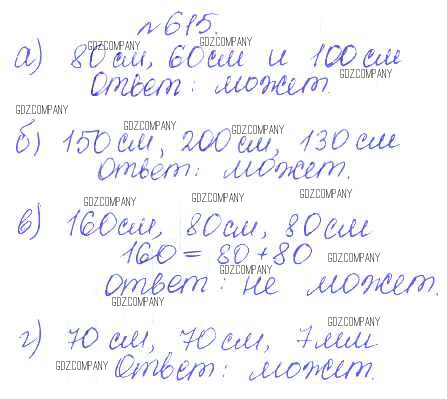 №615.
а) 80см, 60см и 100см
Ответ: может.
б) 150см, 200см, 130см
Ответ: может.
в) 160см, 80см, 80см
160=80+80
Ответ: не может.
г) 70см, 70см, 7мм
Ответ: может.
GDZCOMPANY
GDZCOMPANY
GDZCOMPANY
GDZCOMPANY
GDZCOMPANY
GDZCOMPANY
GDZCOMPANY
GDZCOMPANY
GDZCOMPANY
GDZCOMPANY
GDZCOMPANY
GDZCOMPANY
GDZCOMPANY
GDZCOMPANY